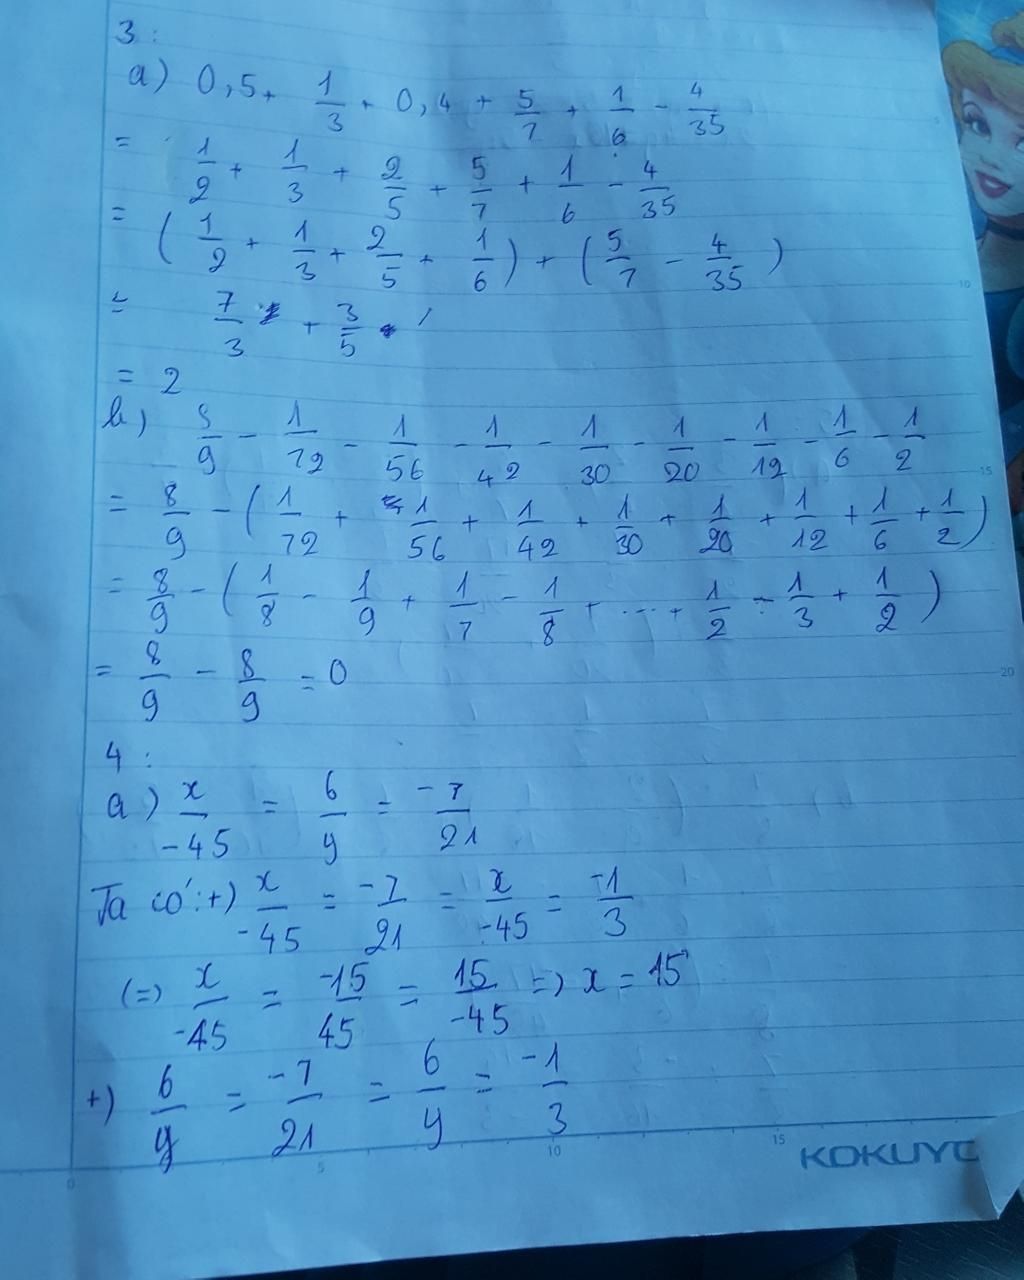 3:
a) 0,5 + 1/3 + 0,4 + 5/7 + 1/6 - 4/35
= 1/2 + 1/3 + 2/5 + 5/7 + 1/6 - 4/35
= (1/2 + 1/3 + 2/5 + 1/6) + (5/7 - 4/35)
= 7/3 + 3/5
= 2
b) 8/9 - 1/72 - 1/56 - 1/42 - 1/30 - 1/20 - 1/12 - 1/6 - 1/2
= 8/9 - (1/72 + 1/56 + 1/42 + 1/30 + 1/20 + 1/12 + 1/6 + 1/2)
= 8/9 - (1/8 - 1/9 + 1/7 - 1/8 + ... + 1/2 - 1/3 + 1/2)
= 8/9 - 8/9 = 0
4:
a) x/-45 = 6/y = -7/21
Ta có: +) x/-45 = -7/21 = x/-45 = -1/3
(=) x/-45 = -15/45 = 15/-45 => x = 15
+) 6/y = -7/21 = 6/y = -1/3
KOKUYO